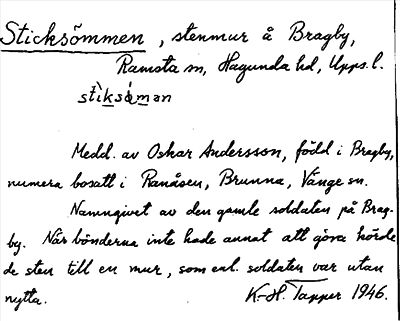 Sticksömmen, stenmur å Bragby,
Ramsta sn, Hagunda hd, Upps. l.
stìksǿmən
Medd. av Oskar Andersson, född i Bragby,
numera bosatt i Ranåsen, Brunna, Vänge sn.
Namngivet av den gamle soldaten på Brag-
by. När bönderna inte hade annat att göra körde
de sten till en mur, som enl. soldaten var utan
nytta. K.-H. Tapper 1946.